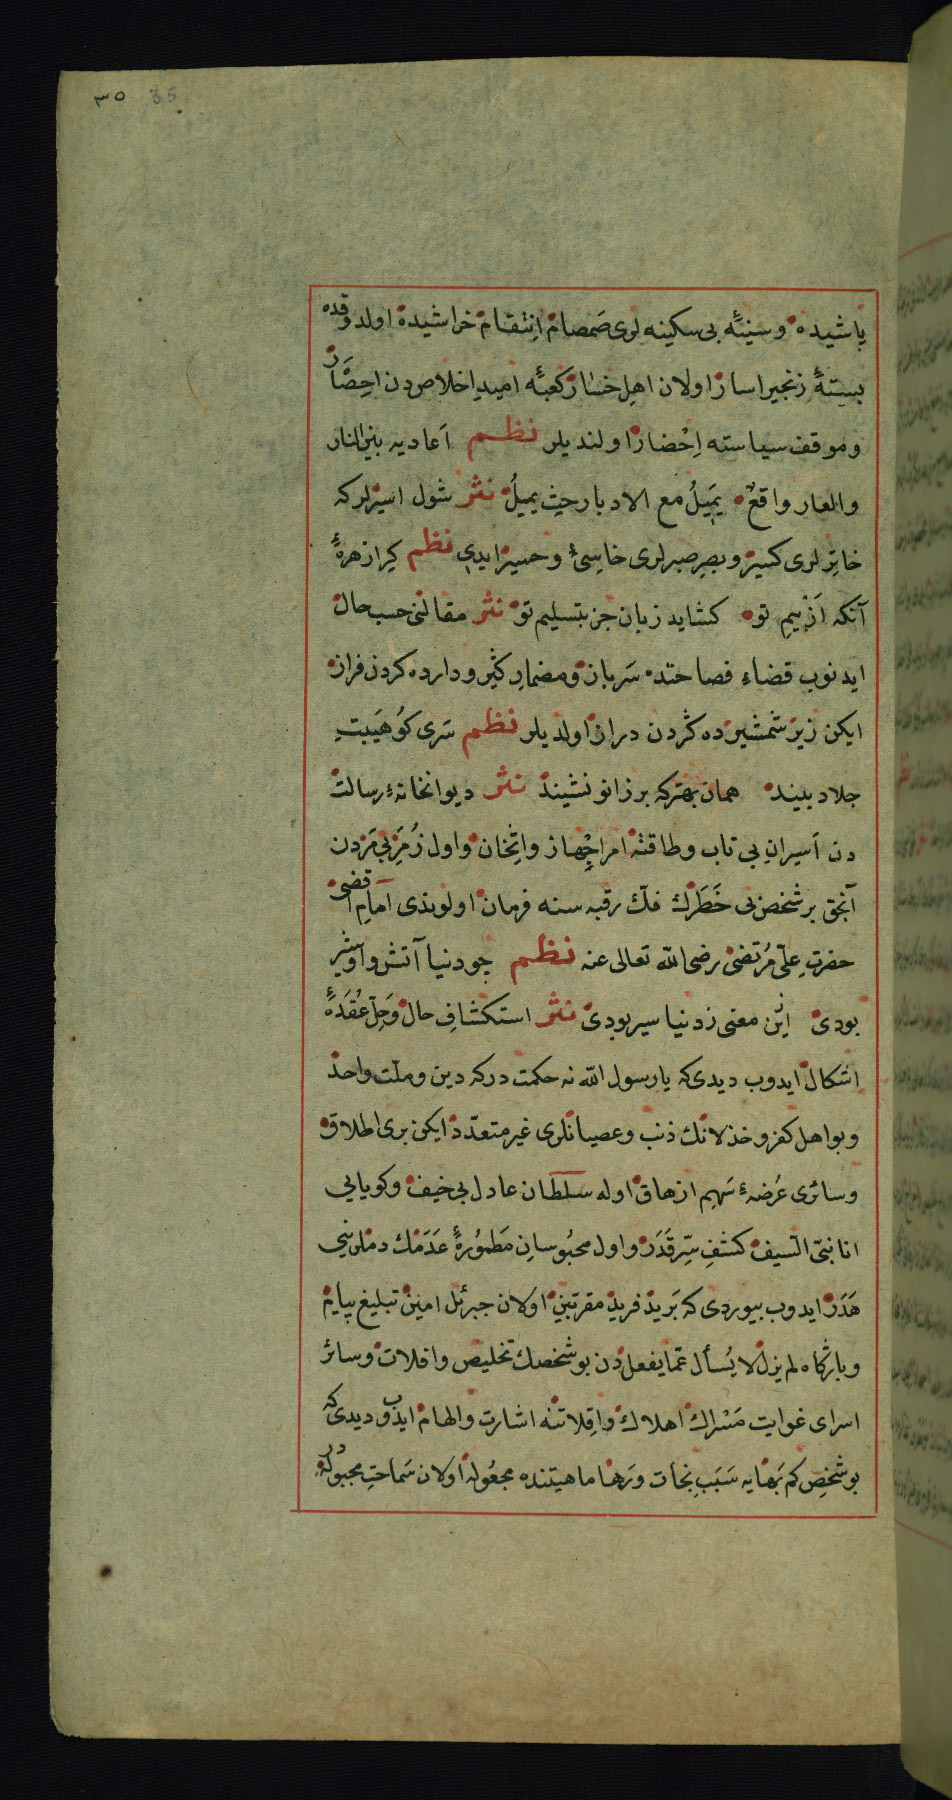 ٣٥ 35
پاشیده و سینۀ بی سکینه لری صمصام انتقام خراشیده اولدوقده
بستۀ زنجیر اسار اولان اهل خسار کعبۀ امید اخلاصدن احصار
وموقف سیاسته احضار اولندیلر نظم اعادیه بین النار
والعار واقع یمیل مع الادبار حیث یمیل نثر شول اسیرلرکه
خاترلری کسیر وبصر صبرلری خاسئ وحسیر ایدی نظم کرا زهرۀ
آنکه از بیم تو کشاید زبان جز بتسلیم تو نثر مقالنی حسب حال
ایدنوب قضاء فصاحتده سربان ومضمار کثیر وداردہ کردن فراز
ایکن زیر شمشیرده گردن دراز اولدیلر نظم سری کو هیبت
جلاد بیند همان بهتر که بر زانو نشیند نثر دیوانخانۀ رسالت
دن اسیران بی تاب وطاقته امر اجهاز واثخان واول زمر بی مزدن
آنجق بر شخص بی خطرک فک رقبه سنه فرمان اولوندی امام اقضی
حضرت علی مرتضی رضی الله تعالی عنه نظم چو دنیا آتش واو شیر
بودی ازین معنی ز دنیا سیر بودی نثر استکشاف حال وحل عقدۀ
اشکال ایدوب دیدی که یا رسول الله نه حکمت درکه دین وملت واحد
وبو اهل کفر وخذلانک ذنب وعصیانلری غیر متعدد ایکن بری اطلاق
وسائری عرضۀ سهم ازهاق اوله سلطان عادل بی خیف وکویای
انا نبی السیف کشف سر قدر واول محبوسان مطمورۀ عدمک دملرینی
هدر ایدوب بیوردی که برید فرید مقربین اولان جبرئل امین تبلیغ پیام
وبارگاه لم یزل لا یسأل عما یفعل دن بو شخصک تخلیص وافلات وسائر
اسرای غوایت مسراک اهلاک وافلاتنه اشارت والهام ایدوب دیدی که
بو شخص کم بهایه سبب نجات ورها ماهیتنده مجعوله اولان سماحت مجبوله در